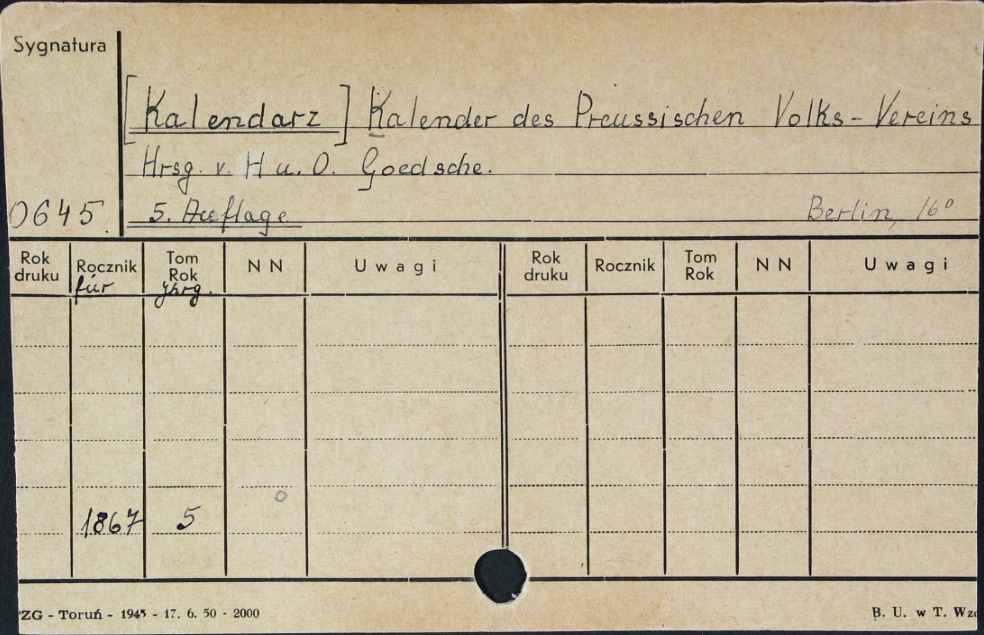 Sygnatura
[Kalendarz] Kalender des Preussischen Volks-Vereins
Hrsg. v. H u. O. Goedsche.
0645. 5. Auflage Berlin, 16°
Rok druku Rocznik für Tom Rok Jhrg. N N Uwagi Rok druku Rocznik Tom Rok N N Uwagi
1867 5
ZG - Toruń - 1945 - 17. 6. 50 - 2000 B. U. w T. Wzó